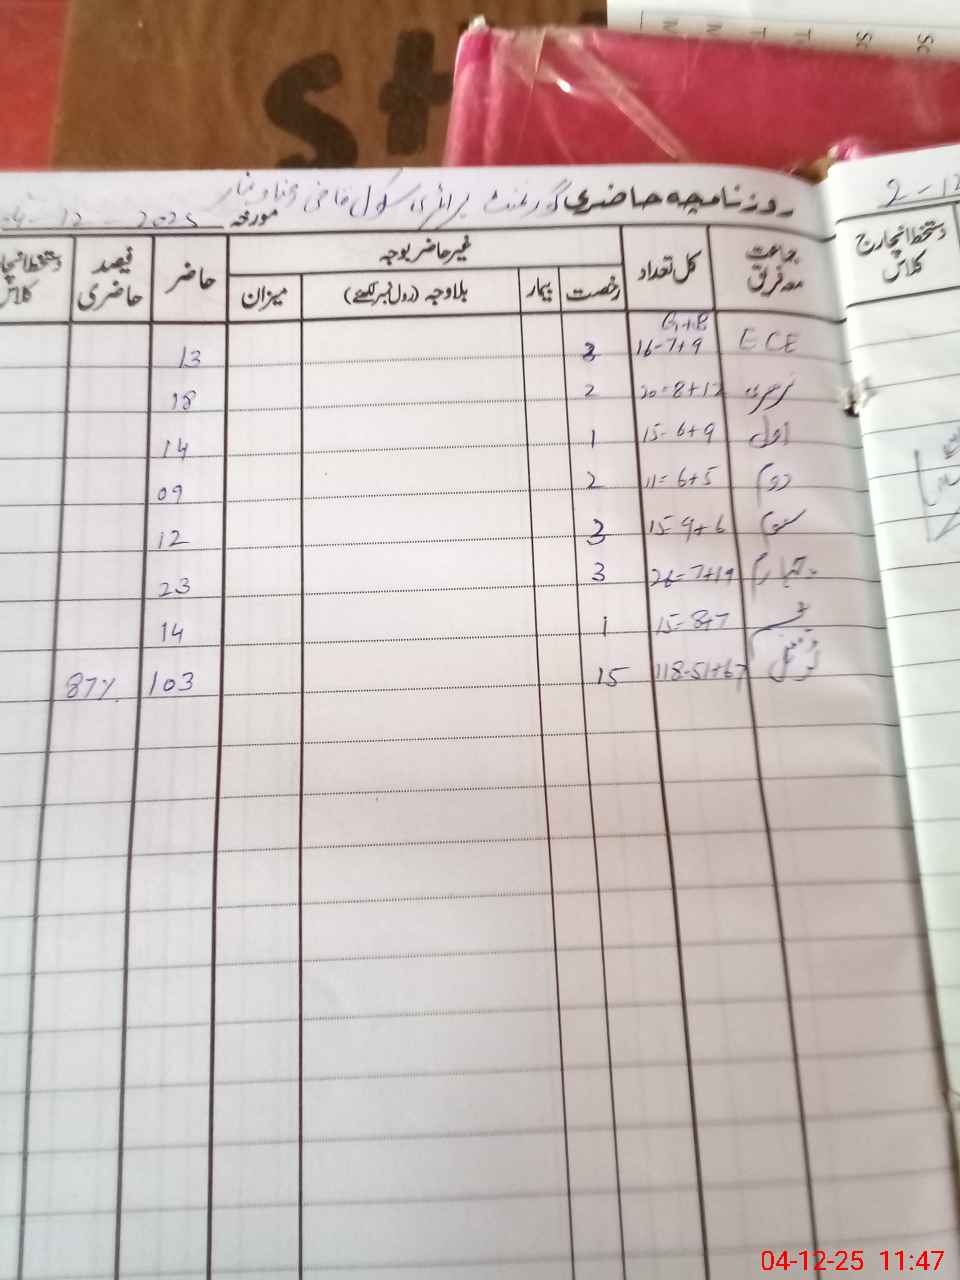 St
Sc
Sc
روزنامچہ حاضری گورنمنٹ پرائمری سکول قاضی
مورخہ 04-12-2025
2-12
جماعت معہ فریق کل تعداد غیر حاضر بوجہ حاضر فیصد حاضری دستخط انچارج کلاس
رخصت بیمار بلاوجہ (رول نمبر لکھئے) میزان
دستخط انچارج کلاس
G+B
ECE 16-7+9 3 13
نرسری 20-8+12 2 18
اول 15-6+9 1 14
دوم 11=6+5 2 09
سوم 15-9+6 3 12
چہارم 26-7+19 3 23
پنجم 15-8+7 1 14
ٹوٹل 118-51+67 15 103 87%
04-12-25 11:47